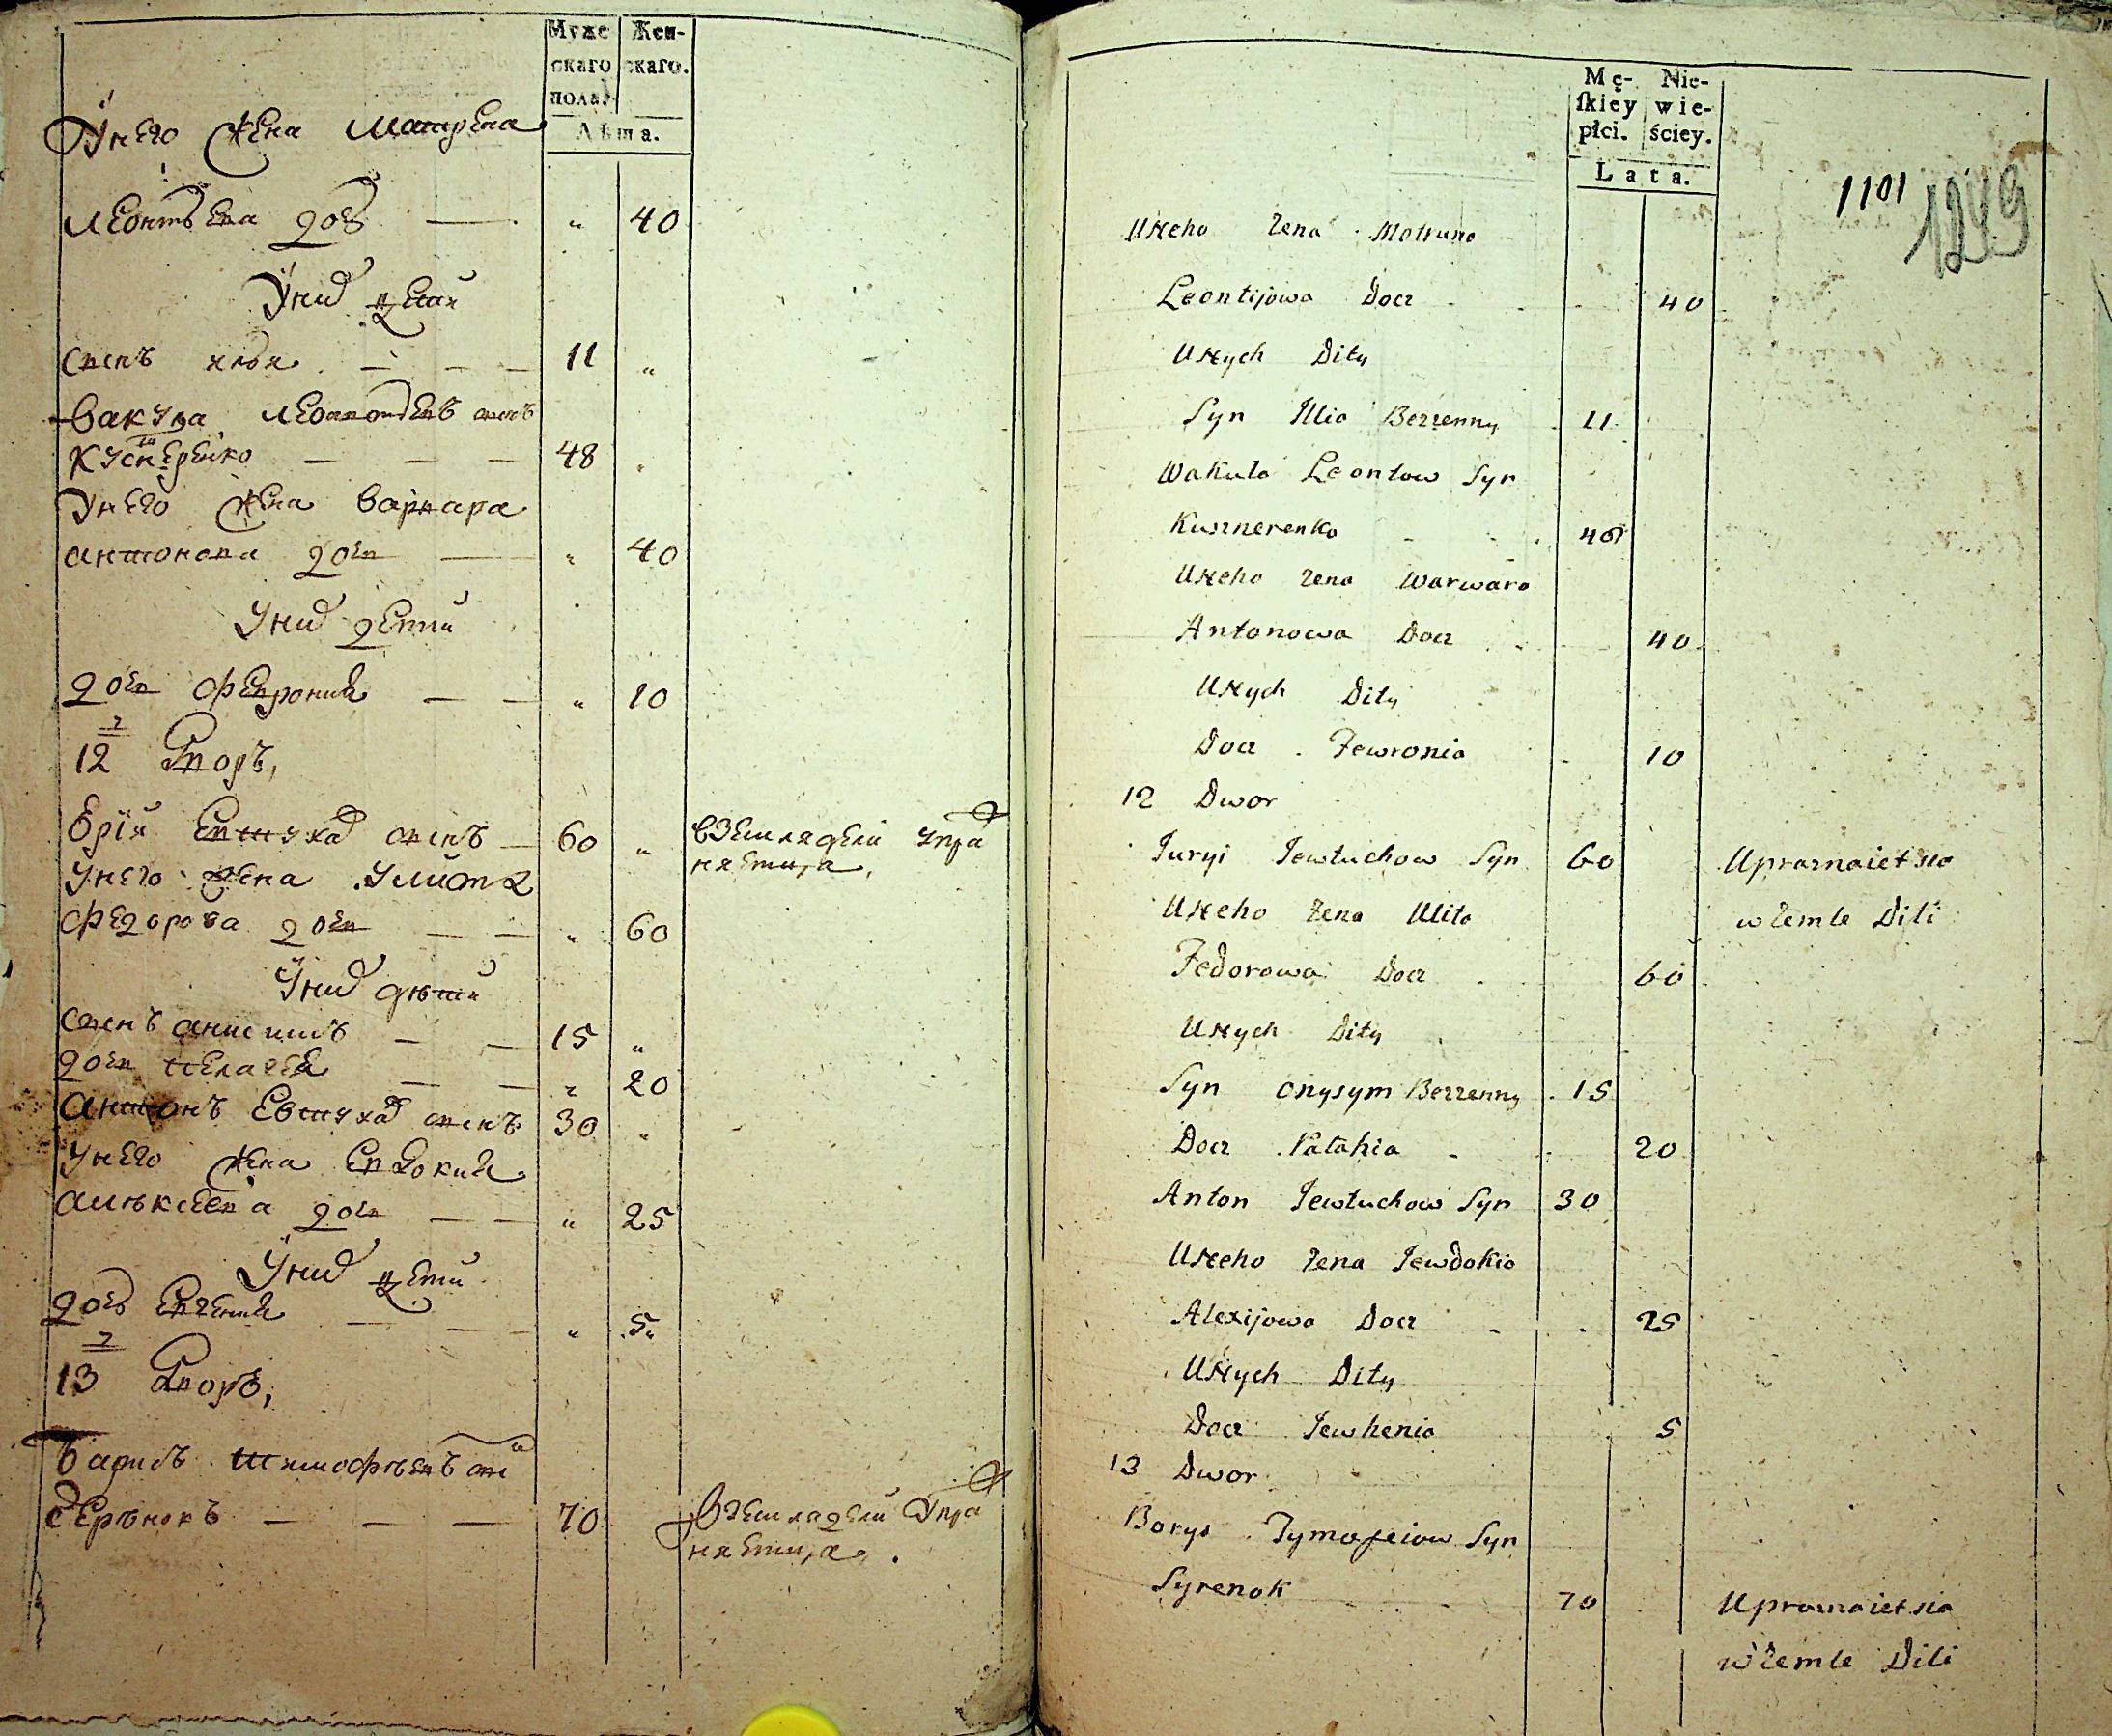 Муже
скаго
пола.
Жен-
скаго.
Лѣта.
Унего жена матрена
леонтьева доч — " 40
Уних дети
синъ илья — — — 11 "
вакула леонтовъ синъ
кушнеренко — — — 48 "
Унего жена варвара
антонова дочь — " 40
Уних дети
дочь феврония — — " 10
12 дворъ,
Ерій Евтухов синъ — 60 "
вземледели упра
няетца,
Унего жена Улита
федорова дочь — — " 60
Уних дѣти
синъ анисимъ — — 15 "
дочь пелагея — — " 20
антонъ Евтухов синъ 30 "
Унего жена Евдокия
алѣксеева дочь — — " 25
Уних дети
дочъ Евгения — — — " 5"
13 дворъ,
барисъ тимофѣевъ син
серѣнокъ — — — 70
вземладели Упра
няетца,
Mę-
ſkiey
płci.
Nie-
wie-
ściey.
Lata.
1101
1249
Uneho żena Motruna
Leontijowa Docz 40
Unych Dity
Syn Illia Bezzenny 11
Wakuła Leontow Syn
Kusznerenko 48
Uneho żena Warwara
Antonowa Docz 40
Unych Dity
Docz Fewronia 10
12 Dwor
Juryi Jewtuchow Syn 60 Uprarnaietsia
Uneho żena Ulita w Zemle Dili
Fedorowa Docz 60
Unych Dity
Syn Onysym Bezzenny 15
Docz Pałahia 20
Anton Jewtuchow Syn 30
Uneho żena Jewdokia
Alexijowa Docz 25
Unych Dity
Docz Jewhenia 5
13 Dwor
Borys Tymofeiow Syn
Syrenok 70 Uprarnaietsia
w Zemle Dili